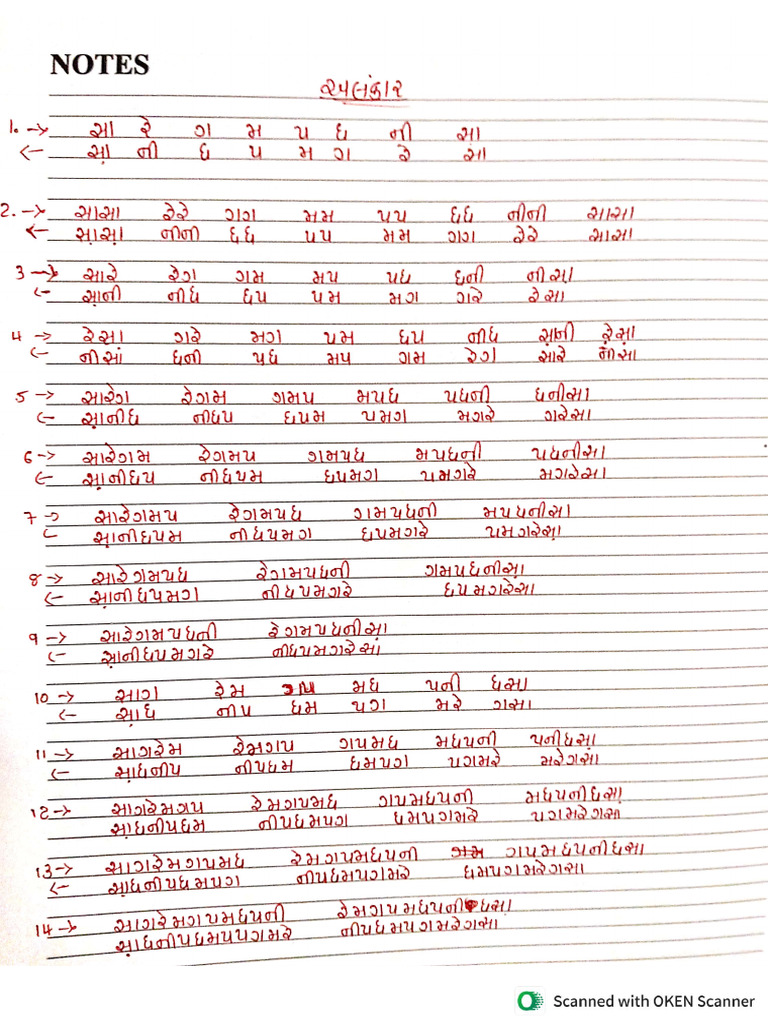 NOTES
અલંકાર
1. → સા રે ગ મ પ ધ ની સા
← સા ની ધ પ મ ગ રે સા
2. → સાસા રેરે ગગ મમ પપ ધધ નીની સાસા
← સાસા નીની ધધ પપ મમ ગગ રેરે સાસા
3 → સારે રેગ ગમ મપ પધ ધની નીસા
← સાની નીધ ધપ પમ મગ ગરે રેસા
4 → રેસા ગરે મગ પમ ધપ નીધ સાંની રેંસાં
← નીસાં ધની પધ મપ ગમ રેગ સારે નીસા
5 → સારેગ રેગમ ગમપ મપધ પધની ધનીસા
← સાનીધ નીધપ ધપમ પમગ મગરે ગરેસા
6 → સારેગમ રેગમપ ગમપધ મપધની પધનીસા
← સાનીધપ નીધપમ ધપમગ પમગરે મગરેસા
7 → સારેગમપ રેગમપધ ગમપધની મપધનીસા
← સાનીધપમ નીધપમગ ધપમગરે પમગરેસા
8 → સારેગમપધ રેગમપધની ગમપધનીસા
← સાનીધપમગ નીધપમગરે ધપમગરેસા
9 → સારેગમપધની રેગમપધનીસા
← સાનીધપમગરે નીધપમગરેસા
10 → સાગ રેમ ગપ મધ પની ધસા
← સાધ નીપ ધમ પગ મરે ગસા
11 → સાગરેમ રેમગપ ગપમધ મધપની પનીધસા
← સાધનીપ નીપધમ ધમપગ પગમરે મરેગસા
12 → સાગરેમગપ રેમગપમધ ગપમધપની મધપનીધસા
સાધનીપધમ નીપધમપગ ધમપગમરે પગમરેગસા
13 → સાગરેમગપમધ રેમગપમધપની ગપમધપનીધસા
← સાધનીપધમપગ નીપધમપગમરે ધમપગમરેગસા
14 → સાગરેમગપમધપની રેમગપમધપનીધસા
સાધનીપધમપપગમરે નીપધમપગમરેગસા
Scanned with OKEN Scanner